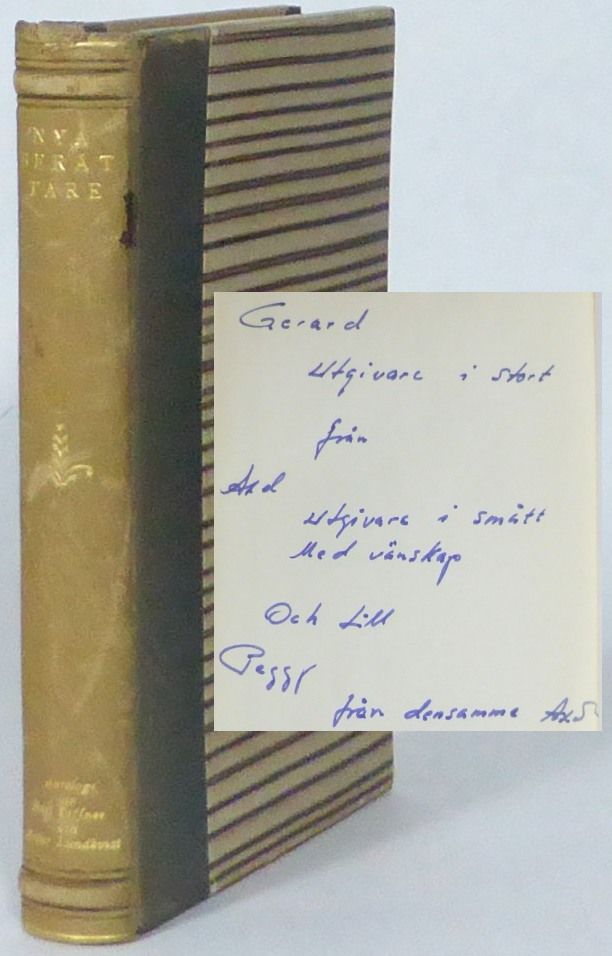 NYA
BERÄT
TARE
Gerard
Utgivare i stort
från
Axel
Utgivare i smått
Med vänskap
Och till
Peggy
från densamme Axel
Lundkvist